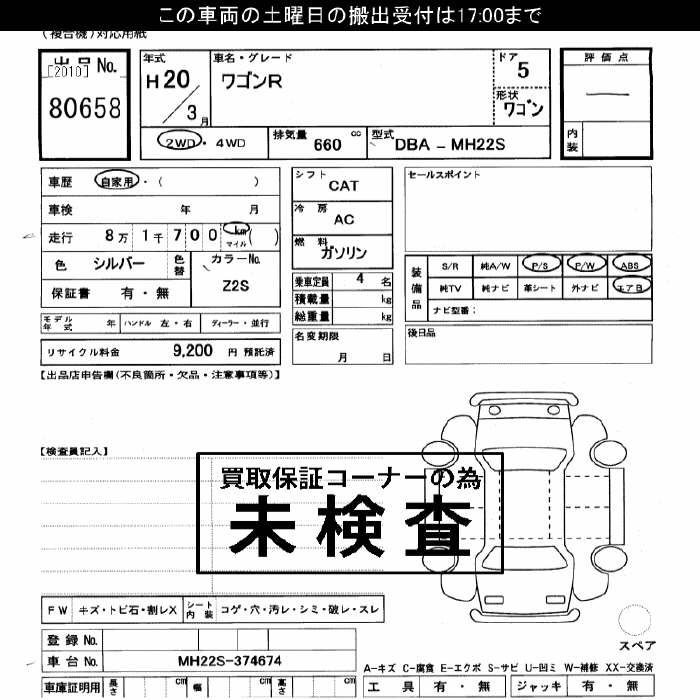 この車両の土曜日の搬出受付は17:00まで
(複合機)対応用紙
出品No.
[2010]
80658
年式
H20
3月
車名・グレード
ワゴンR
ドア
5
形状
ワゴン
評価点
―
内装
2WD・4WD
排気量 660 cc
型式 DBA - MH22S
車歴 自家用・( )
車検 年 月
走行 8万 1千 7 0 0 km マイル ( )
色 シルバー
色替
カラーNo.
Z2S
保証書 有・無
シフト
CAT
冷房
AC
燃料
ガソリン
乗車定員 4 名
積載量 kg
総重量 kg
セールスポイント
装備品
S/R 純A/W P/S P/W ABS
純TV 純ナビ 革シート 外ナビ エアB
ナビ型番:
モデル年式 年 ハンドル 左・右 ディーラー・並行
リサイクル料金 9,200 円 預託済
名変期限
月 日
後日品
【出品店申告欄(不良箇所・欠品・注意事項等)】
【検査員記入】
買取保証コーナーの為
未検査
FW キズ・トビ石・割レX シート内装 コゲ・穴・汚レ・シミ・破レ・スレ
登録No.
車台No. MH22S-374674
車庫証明用 長さ cm 幅 cm 高さ cm
スペア
A-キズ C-腐食 E-エクボ S-サビ U-凹ミ W-補修 XX-交換済
工具 有・無 ジャッキ 有・無